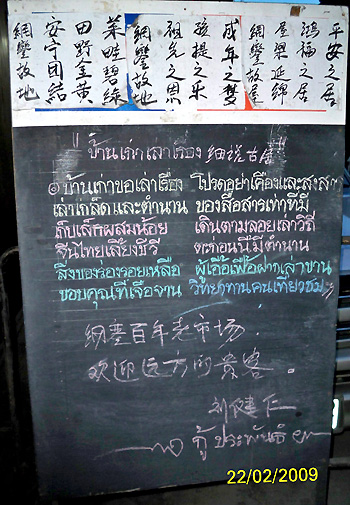 平安之居
鴻福之居
屋樂延綿
網巒故屋
成年之梦
孩提之乐
祖先之恩
網巒故地
菜畦碧綠
田野金黄
安宁团結
網巒故地
"บ้านเก่าเล่าเรื่อง 细说古屋"
๏ บ้านเก่าขอเล่าเรื่อง โปรดอย่าเคืองและสงสัย
เล่าเกล็ดและตำนาน ของสื่อสารเท่าที่มี
เก็บเล็กผสมน้อย เดินตามลอยเล่าวิถี
จีนไทยเลี้ยงชีวี ตะก่อนนี้มีตำนาน
สิ่งของร่องรอยเหลือ ผู้เอื้อเฟื้อฝากเล่าขาน
ขอบคุณที่เจือจาน วิทยาทานคนเที่ยวชม
網巒百年老市场.
欢迎远方的贵客.
刘健仁
กู้ ประพันธ์
22/02/2009